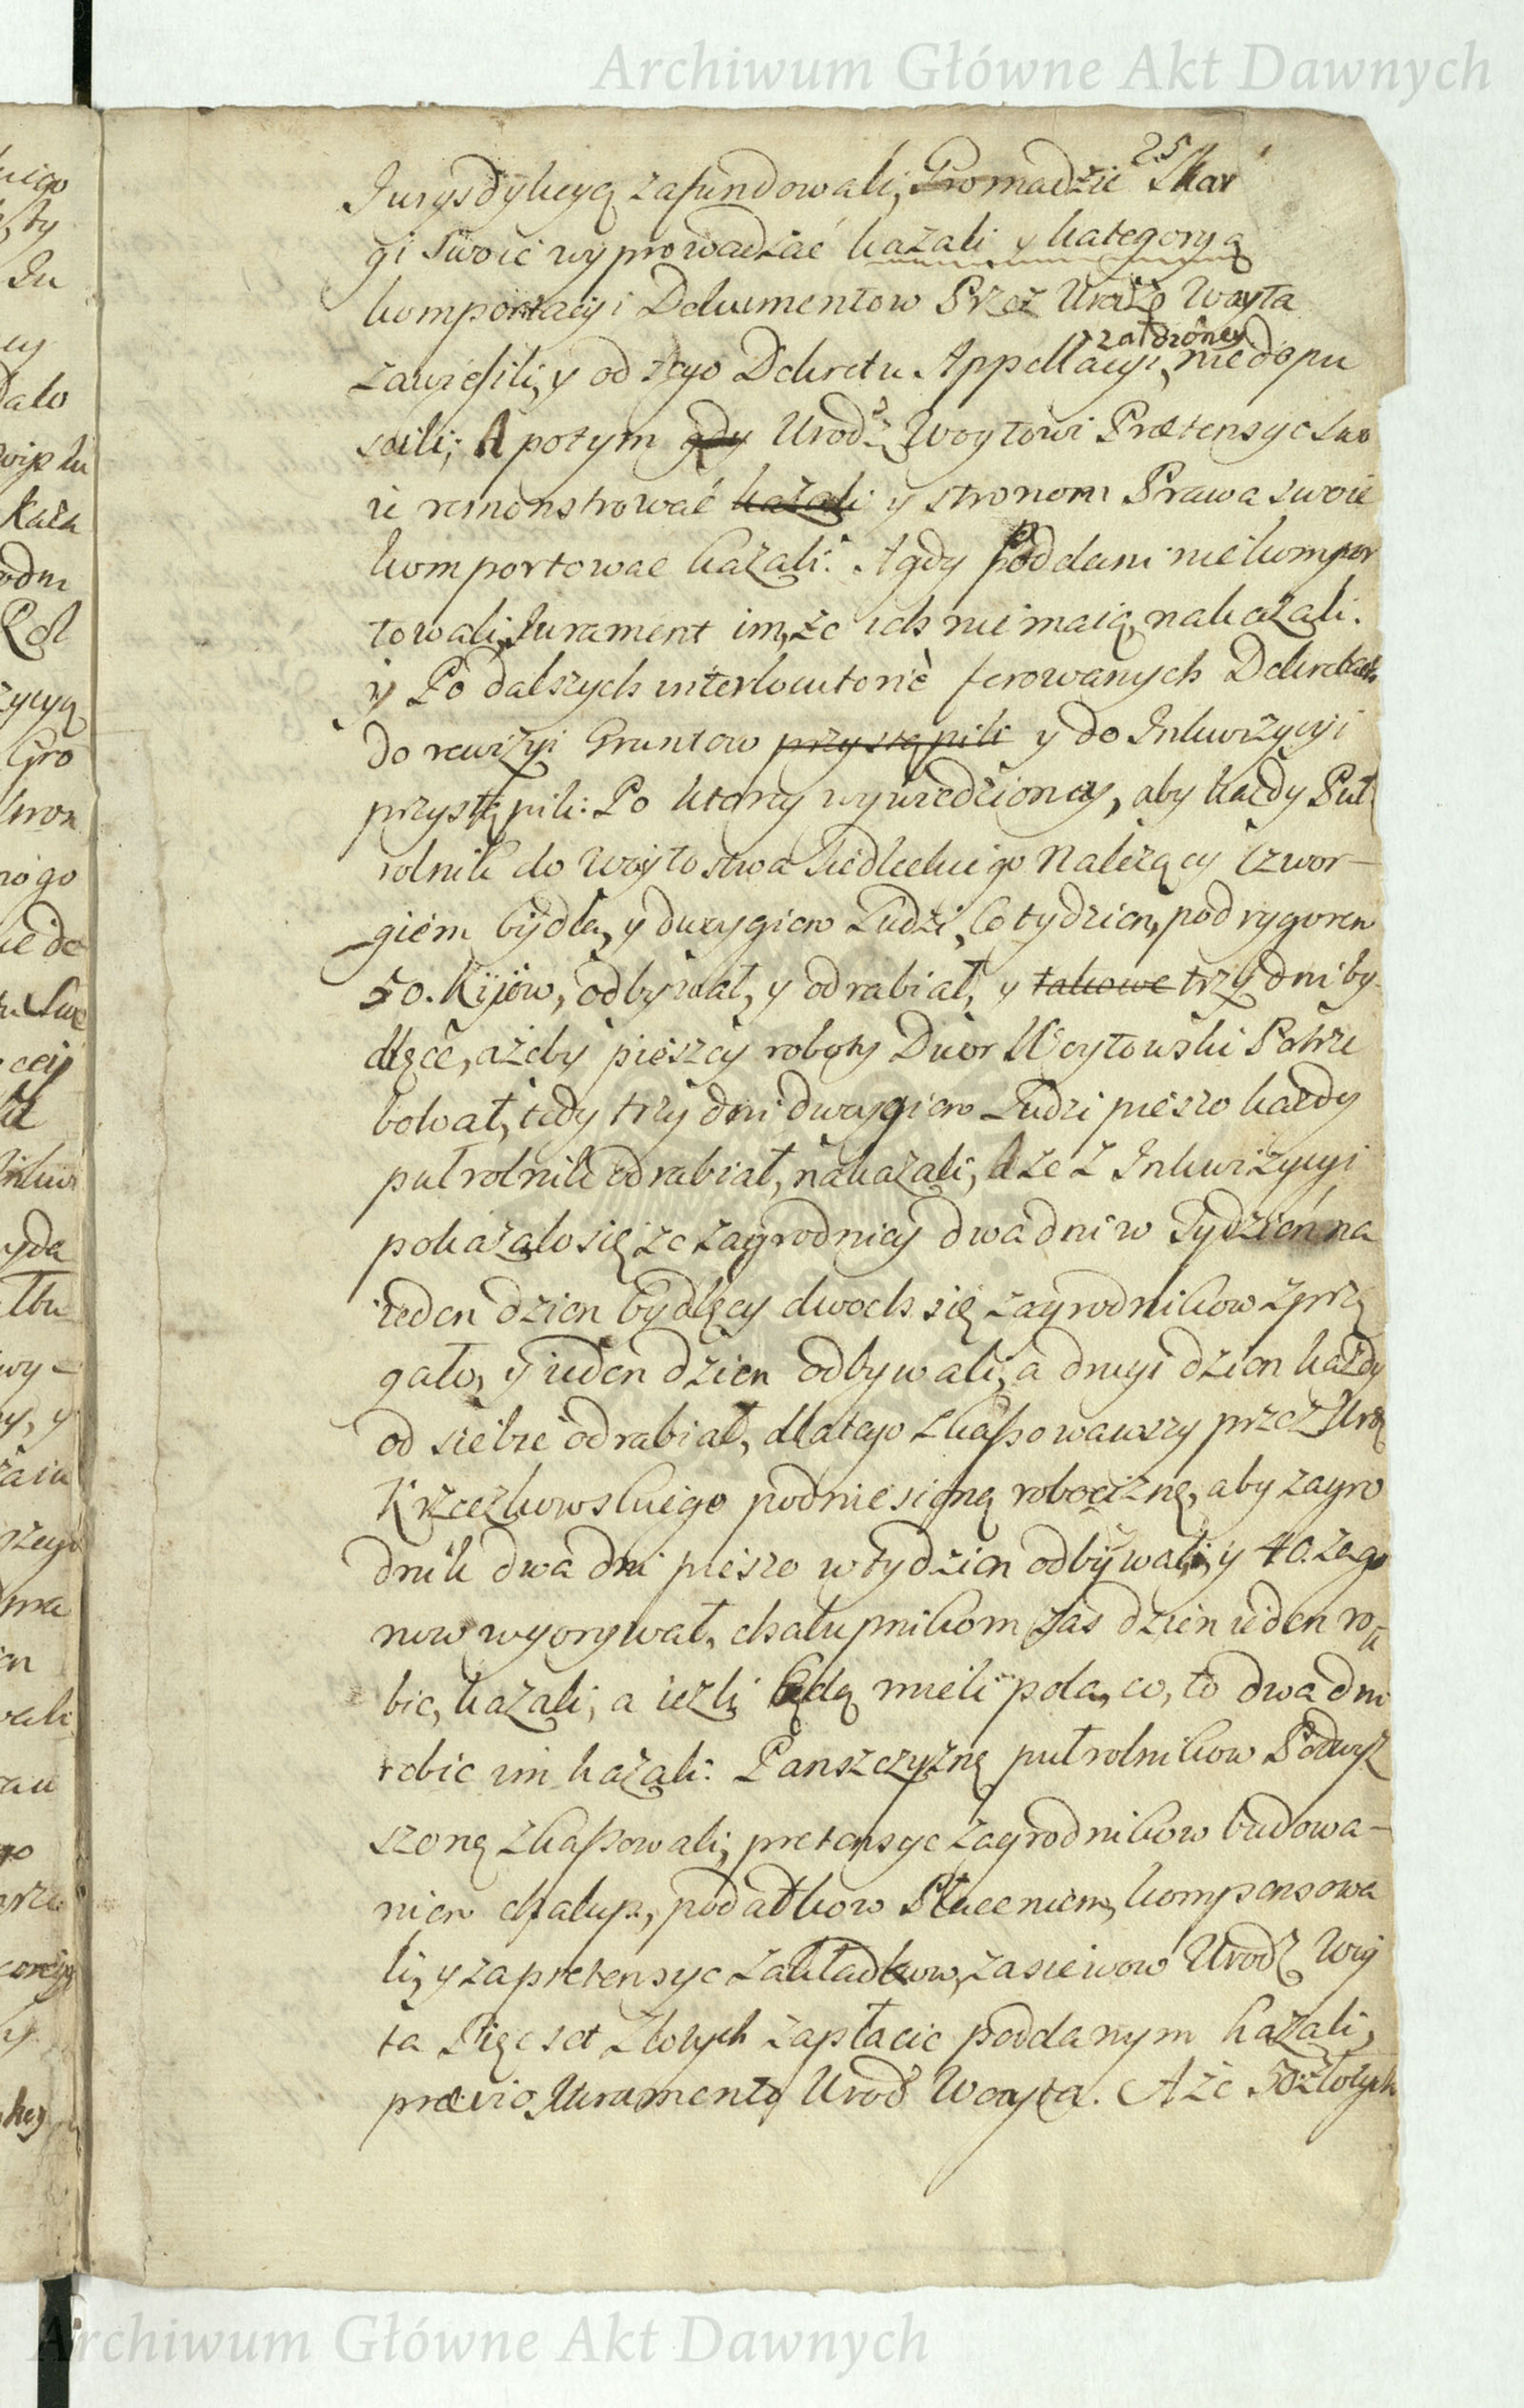 Archiwum Główne Akt Dawnych
25
Jurysdykcyą zafundowali, Gromadzie Skar
gi swoie wyprowadzać kazali y kategoryą
komportacyi Dokumentow Przez Urodz Woyta
założoney
zawiesili, y od tego Dekretu Appellacyi, nie dopu
scili; A potym gdy Urodz Woytowi Prætensye swo
ie remonstrować kazali y stronom Prawa swoie
komportowac kazali. A gdy Poddani nie kompor
towali, Jurament im, że ich nie maią, nakazali.
y Po dalszych interlocutoriè ferowanych Dekretach
do rewizyi Gruntow przystąpili y do Inkwizycyi
przystąpili: Po ktory wywiedzioney, aby każdy Puł
rolnik do Woytostwa Siedleckiego Należący Czwor-
giem bydła, y dwoygiem Ludzi, Co tydzien, pod rygorem
50. Kijów, odbywał, y odrabiał, y takowe trzy dni by
dlęce, ażeby pieszey roboty Dwor Woytowski Potrze
bował, tedy trzy dni dwoygiem Ludzi pieszo każdy
pułrolnik odrabiał, nakazali, A że z Inkwizycyi
pokazało się że zagrodnicy dwa dni w Tydzień na
ieden dzien bydlęcy dwoch się zagrodnikow zprzę
gało, y ieden dzien odbywali, a drugi dzien każdy
od siebie odrabiał, dlatego skassowawszy przez Uro
Krzeczkowskiego podniesioną robociznę, aby zagro
dnik dwa dni pieszo w tydzien odbywali, y 40. zago
now wyorywał, chałupnikom zas dzien ieden ro
bic, kazali, a iezli będą mieli pola, co, to dwa dni
robic im kazali. Panszczyznę pułrolnikow Podwyż
szoną skassowali, pretensye zagrodnikow budowa-
niem chałup, podatkow Płaceniem, kompensowa
li, y za pretensye zakładkow, zasiewow Urodz Woy
ta Pięc set Złotych zapłacic poddanym kazali,
prævio Juramento Urod Woyta. A że 50 złotych
Archiwum Główne Akt Dawnych